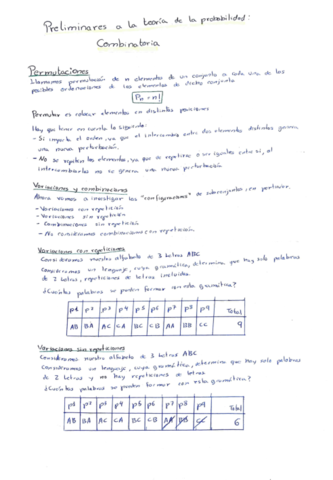 Preliminares a la teoría de la probabilidad:
Combinatoria
Permutaciones
Llamamos permutación de n elementos de un conjunto a cada una de las
posibles ordenaciones de los elementos de dicho conjunto
Pn = n!
Permutar es colocar elementos en distintas posiciones
Hay que tener en cuenta lo siguiente:
- Sí importa el orden, ya que el intercambio entre dos elementos distintos genera
una nueva perturbación.
- No se repiten los elementos, ya que de repetirse o ser iguales entre sí, al
intercambiarlos no se genera una nueva perturbación
Variaciones y combinaciones
Ahora vamos a investigar las "configuraciones" de subconjuntos, en particular:
- Variaciones con repetición
- Variaciones sin repetición
- Combinaciones sin repetición
- No consideramos combinaciones con repetición.
Variaciones con repeticiones
Consideremos nuestro alfabeto de 3 letras ABC
Consideremos un lenguaje, cuya gramática, determina que hay solo palabras
de 2 letras, repeticiones de letras incluidas.
¿Cuántas palabras se pueden formar con esta gramática?
p1 p2 p3 p4 p5 p6 p7 p8 p9 Total
AB BA AC CA BC CB AA BB CC 9
Variaciones sin repeticiones
Consideremos nuestro alfabeto de 3 letras ABC
Consideremos un lenguaje, cuya gramática, determina que hay solo palabras
de 2 letras y no hay repeticiones de letras
¿Cuántas palabras se pueden formar con esta gramática?
p1 p2 p3 p4 p5 p6 p7 p8 p9 Total
AB BA AC CA BC CB AA BB CC 6